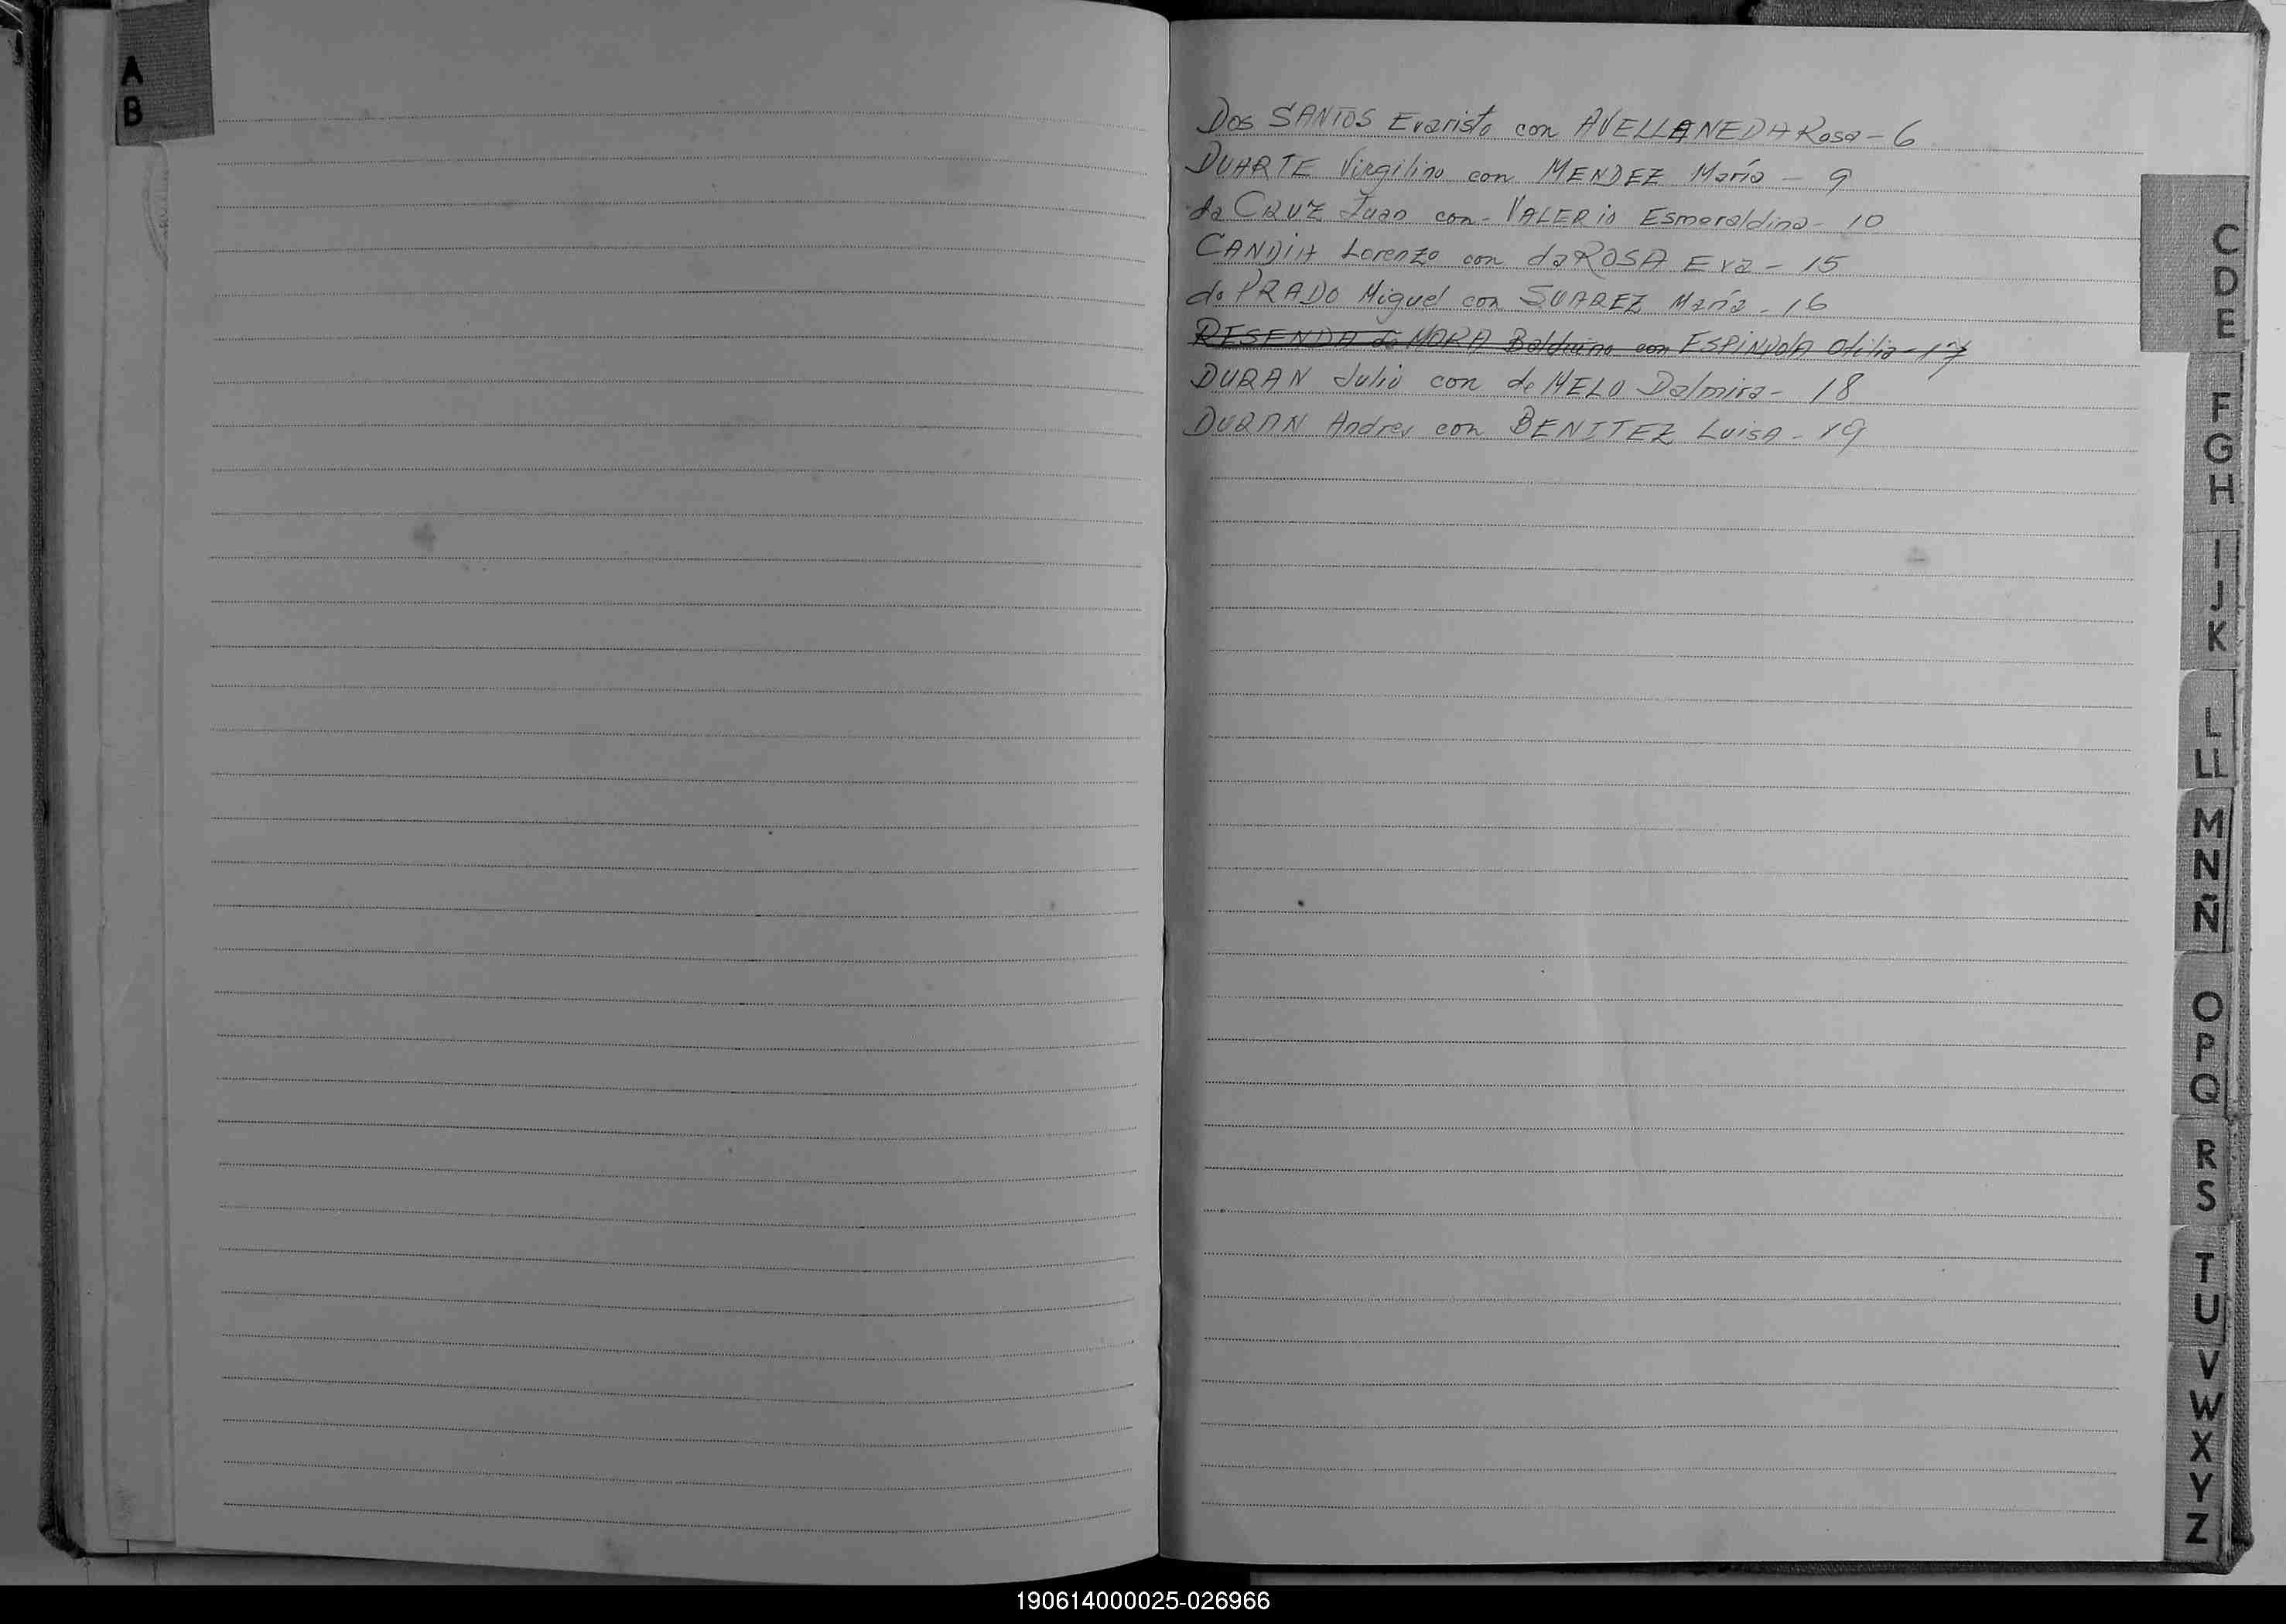 A
B
Dos SANTOS Evaristo con AVELLANEDA Rosa - 6
DUARTE Virgilino con MENDEZ María - 9
da CRUZ Juan con - VALERio Esmeraldina - 10
CANDIA Lorenzo con da ROSA Eva - 15
do PRADO Miguel con SUAREZ María - 16
RESENDA de MORA Balduino con ESPINDOLA Otilia - 17
DURAN Julio con de MELO Dalmira - 18
DURAN Andres con BENITEZ LUISA - 19
C
D
E
F
G
H
I
J
K
L
Ll
M
N
Ñ
O
P
Q
R
S
T
U
V
W
X
Y
Z
190614000025-026966